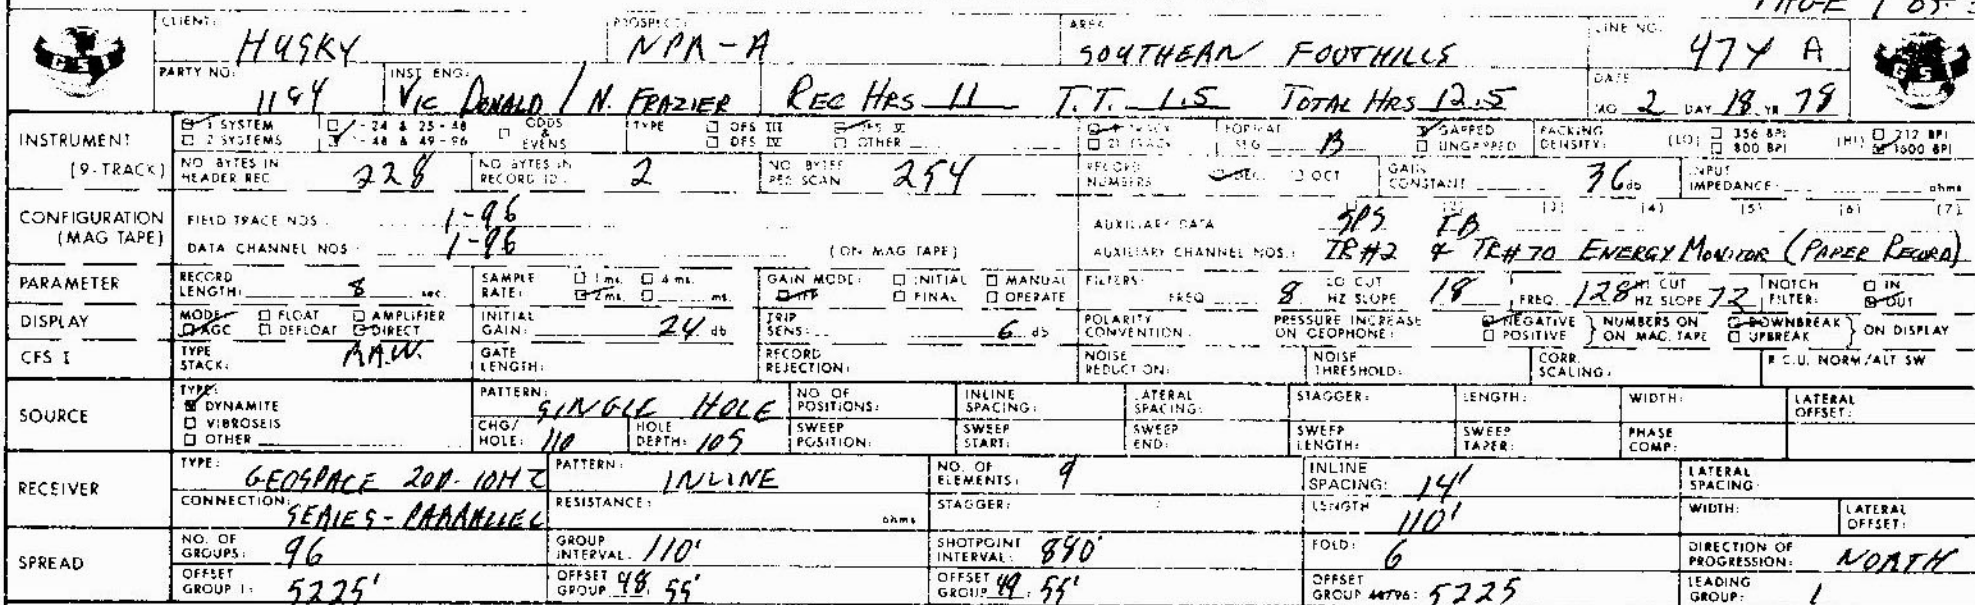 PAGE 1 OF
CLIENT: HUSKY PROSPECT: NPR-A AREA: SOUTHERN FOOTHILLS LINE NO. 47Y A
GSI GSI
PARTY NO: 1194 INST ENG: VIC DONALD / N. FRAZIER REC HRS 11 T.T. 1.5 TOTAL HRS 12.5 DATE MO. 2 DAY 18 YR 78
INSTRUMENT (9-TRACK)
1 SYSTEM 1-24 & 25-48 ODDS & EVENS TYPE DFS III DFS V 9 TRACK FORMAT SEG B GAPPED PACKING DENSITY: (LO) 356 BPI (HI) 712 BPI
2 SYSTEMS 1-48 & 49-96 DFS IV OTHER 21 TRACK UNGAPPED 800 BPI 1600 BPI
NO. BYTES IN HEADER REC 228 NO. BYTES IN RECORD ID. 2 NO. BYTES PER SCAN 254 RECORD NUMBERS DEC. OCT GAIN CONSTANT 36 db INPUT IMPEDANCE ohms
CONFIGURATION (MAG TAPE)
FIELD TRACE NOS 1-96 AUXILIARY DATA (1) SPS (2) TB (3) (4) (5) (6) (7)
DATA CHANNEL NOS 1-96 (ON MAG TAPE) AUXILIARY CHANNEL NOS.: TR#2 & TR#70 ENERGY MONITOR (PAPER RECORD)
PARAMETER RECORD LENGTH: 8 sec. SAMPLE RATE: 1 ms. 4 ms. 2 ms. ms. GAIN MODE: INITIAL MANUAL IFP FINAL OPERATE FILTERS: FREQ 8 LO CUT HZ SLOPE 18 FREQ. 128 HI CUT HZ SLOPE 72 NOTCH FILTER: IN OUT
DISPLAY MODE: FLOAT AMPLIFIER AGC DEFLOAT DIRECT INITIAL GAIN: 24 db TRIP SENS: 6 db POLARITY CONVENTION: PRESSURE INCREASE ON GEOPHONE: NEGATIVE POSITIVE } NUMBERS ON MAG. TAPE DOWNBREAK UPBREAK } ON DISPLAY
CFS I TYPE STACK: R.A.W. GATE LENGTH: RECORD REJECTION: NOISE REDUCTION: NOISE THRESHOLD: CORR. SCALING: R.C.U. NORM/ALT SW
SOURCE
TYPE: DYNAMITE VIBROSEIS OTHER
PATTERN: SINGLE HOLE NO. OF POSITIONS: INLINE SPACING: LATERAL SPACING: STAGGER: LENGTH: WIDTH: LATERAL OFFSET:
CHG/HOLE: 110 HOLE DEPTH: 105 SWEEP POSITION: SWEEP START: SWEEP END: SWEEP LENGTH: SWEEP TAPER: PHASE COMP:
RECEIVER
TYPE: GEOSPACE 20D-10HZ PATTERN: INLINE NO. OF ELEMENTS: 9 INLINE SPACING: 14' LATERAL SPACING:
CONNECTION: SERIES-PARALLEL RESISTANCE: ohms STAGGER: LENGTH 110' WIDTH: LATERAL OFFSET:
SPREAD
NO. OF GROUPS: 96 GROUP INTERVAL: 110' SHOTPOINT INTERVAL: 890' FOLD: 6 DIRECTION OF PROGRESSION: NORTH
OFFSET GROUP 1: 5225' OFFSET GROUP 48: 55' OFFSET GROUP 49: 55' OFFSET GROUP 96: 5225 LEADING GROUP: 1